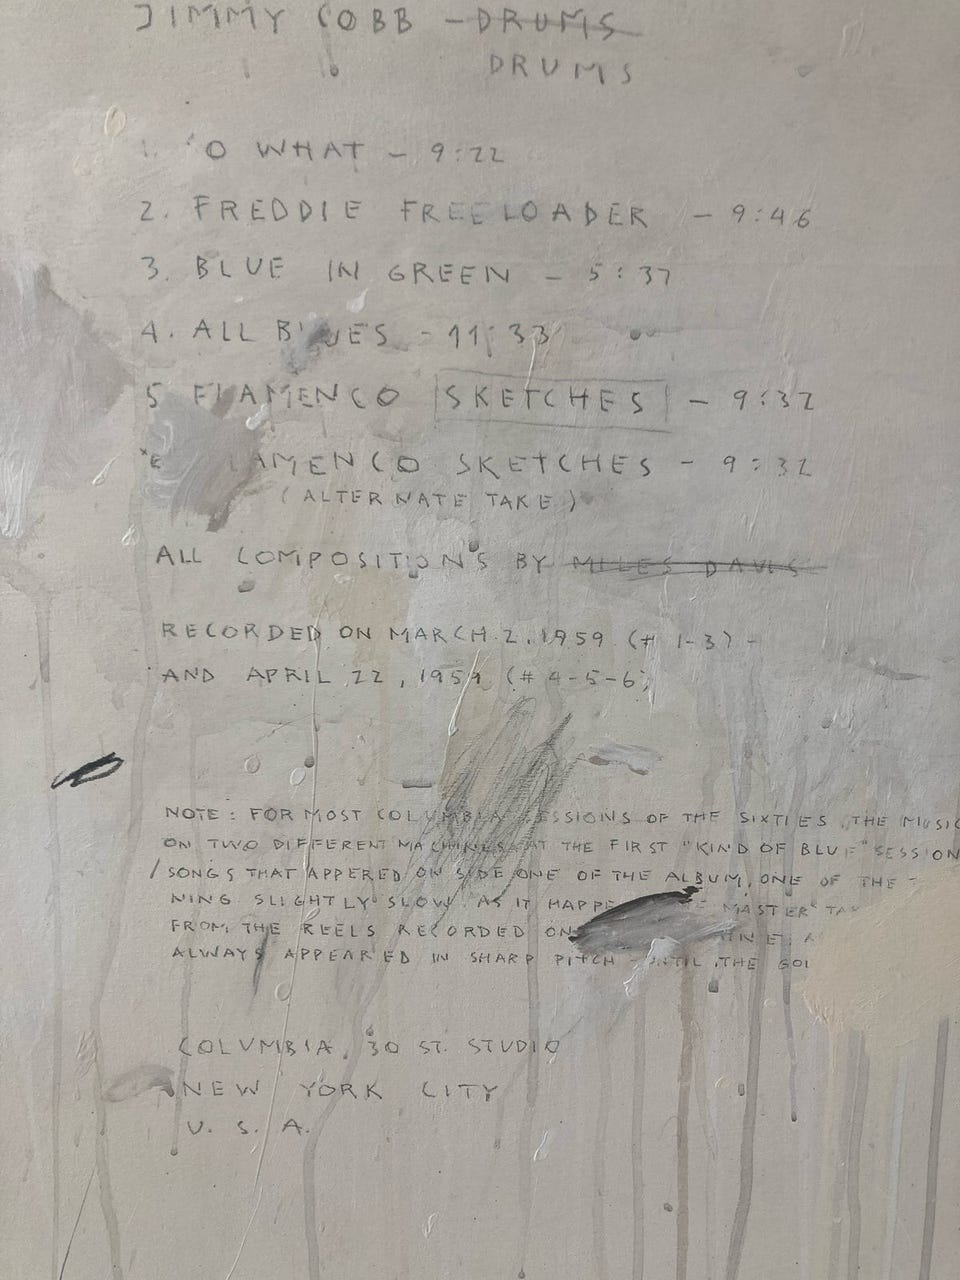 JIMMY COBB - DRUMS
DRUMS
1. O WHAT - 9:22
2. FREDDIE FREELOADER - 9:46
3. BLUE IN GREEN - 5:37
4. ALL BLUES - 11:33
5 FLAMENCO SKETCHES - 9:32
FLAMENCO SKETCHES - 9:32
(ALTERNATE TAKE)
ALL COMPOSITIONS BY MILES DAVIS
RECORDED ON MARCH 2, 1959 (# 1-3) -
AND APRIL 22, 1959 (# 4-5-6)
NOTE: FOR MOST COLUMBIA SESSIONS OF THE SIXTIES, THE MUSIC
ON TWO DIFFERENT MACHINES. AT THE FIRST "KIND OF BLUE" SESSION
SONGS THAT APPERED ON SIDE ONE OF THE ALBUM, ONE OF THE
NING SLIGHTLY SLOW. AS IT HAPPE MASTER"
FROM THE REELS RECORDED ON
ALWAYS APPEARED IN SHARP PITCH - UNTIL THE
COLUMBIA, 30 ST. STUDIO
NEW YORK CITY
U. S. A.